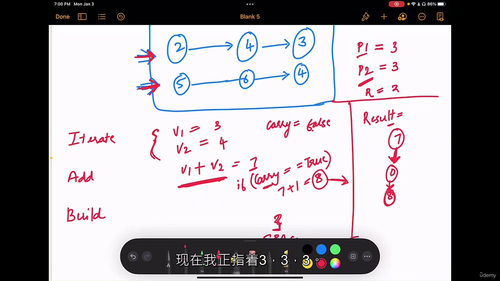 7:00 PM Mon Jan 3
86%
Done
Blank 5
2 4 3
5 6 4
P1 = 3
P2 = 3
R = 2
Iterate
V1 = 3
V2 = 4
carry = false
Result =
7
0
8
Add
V1 + V2 = 7
if (carry == True)
7+1 = 8
Build
现在我正指着3，3，3。
Udemy